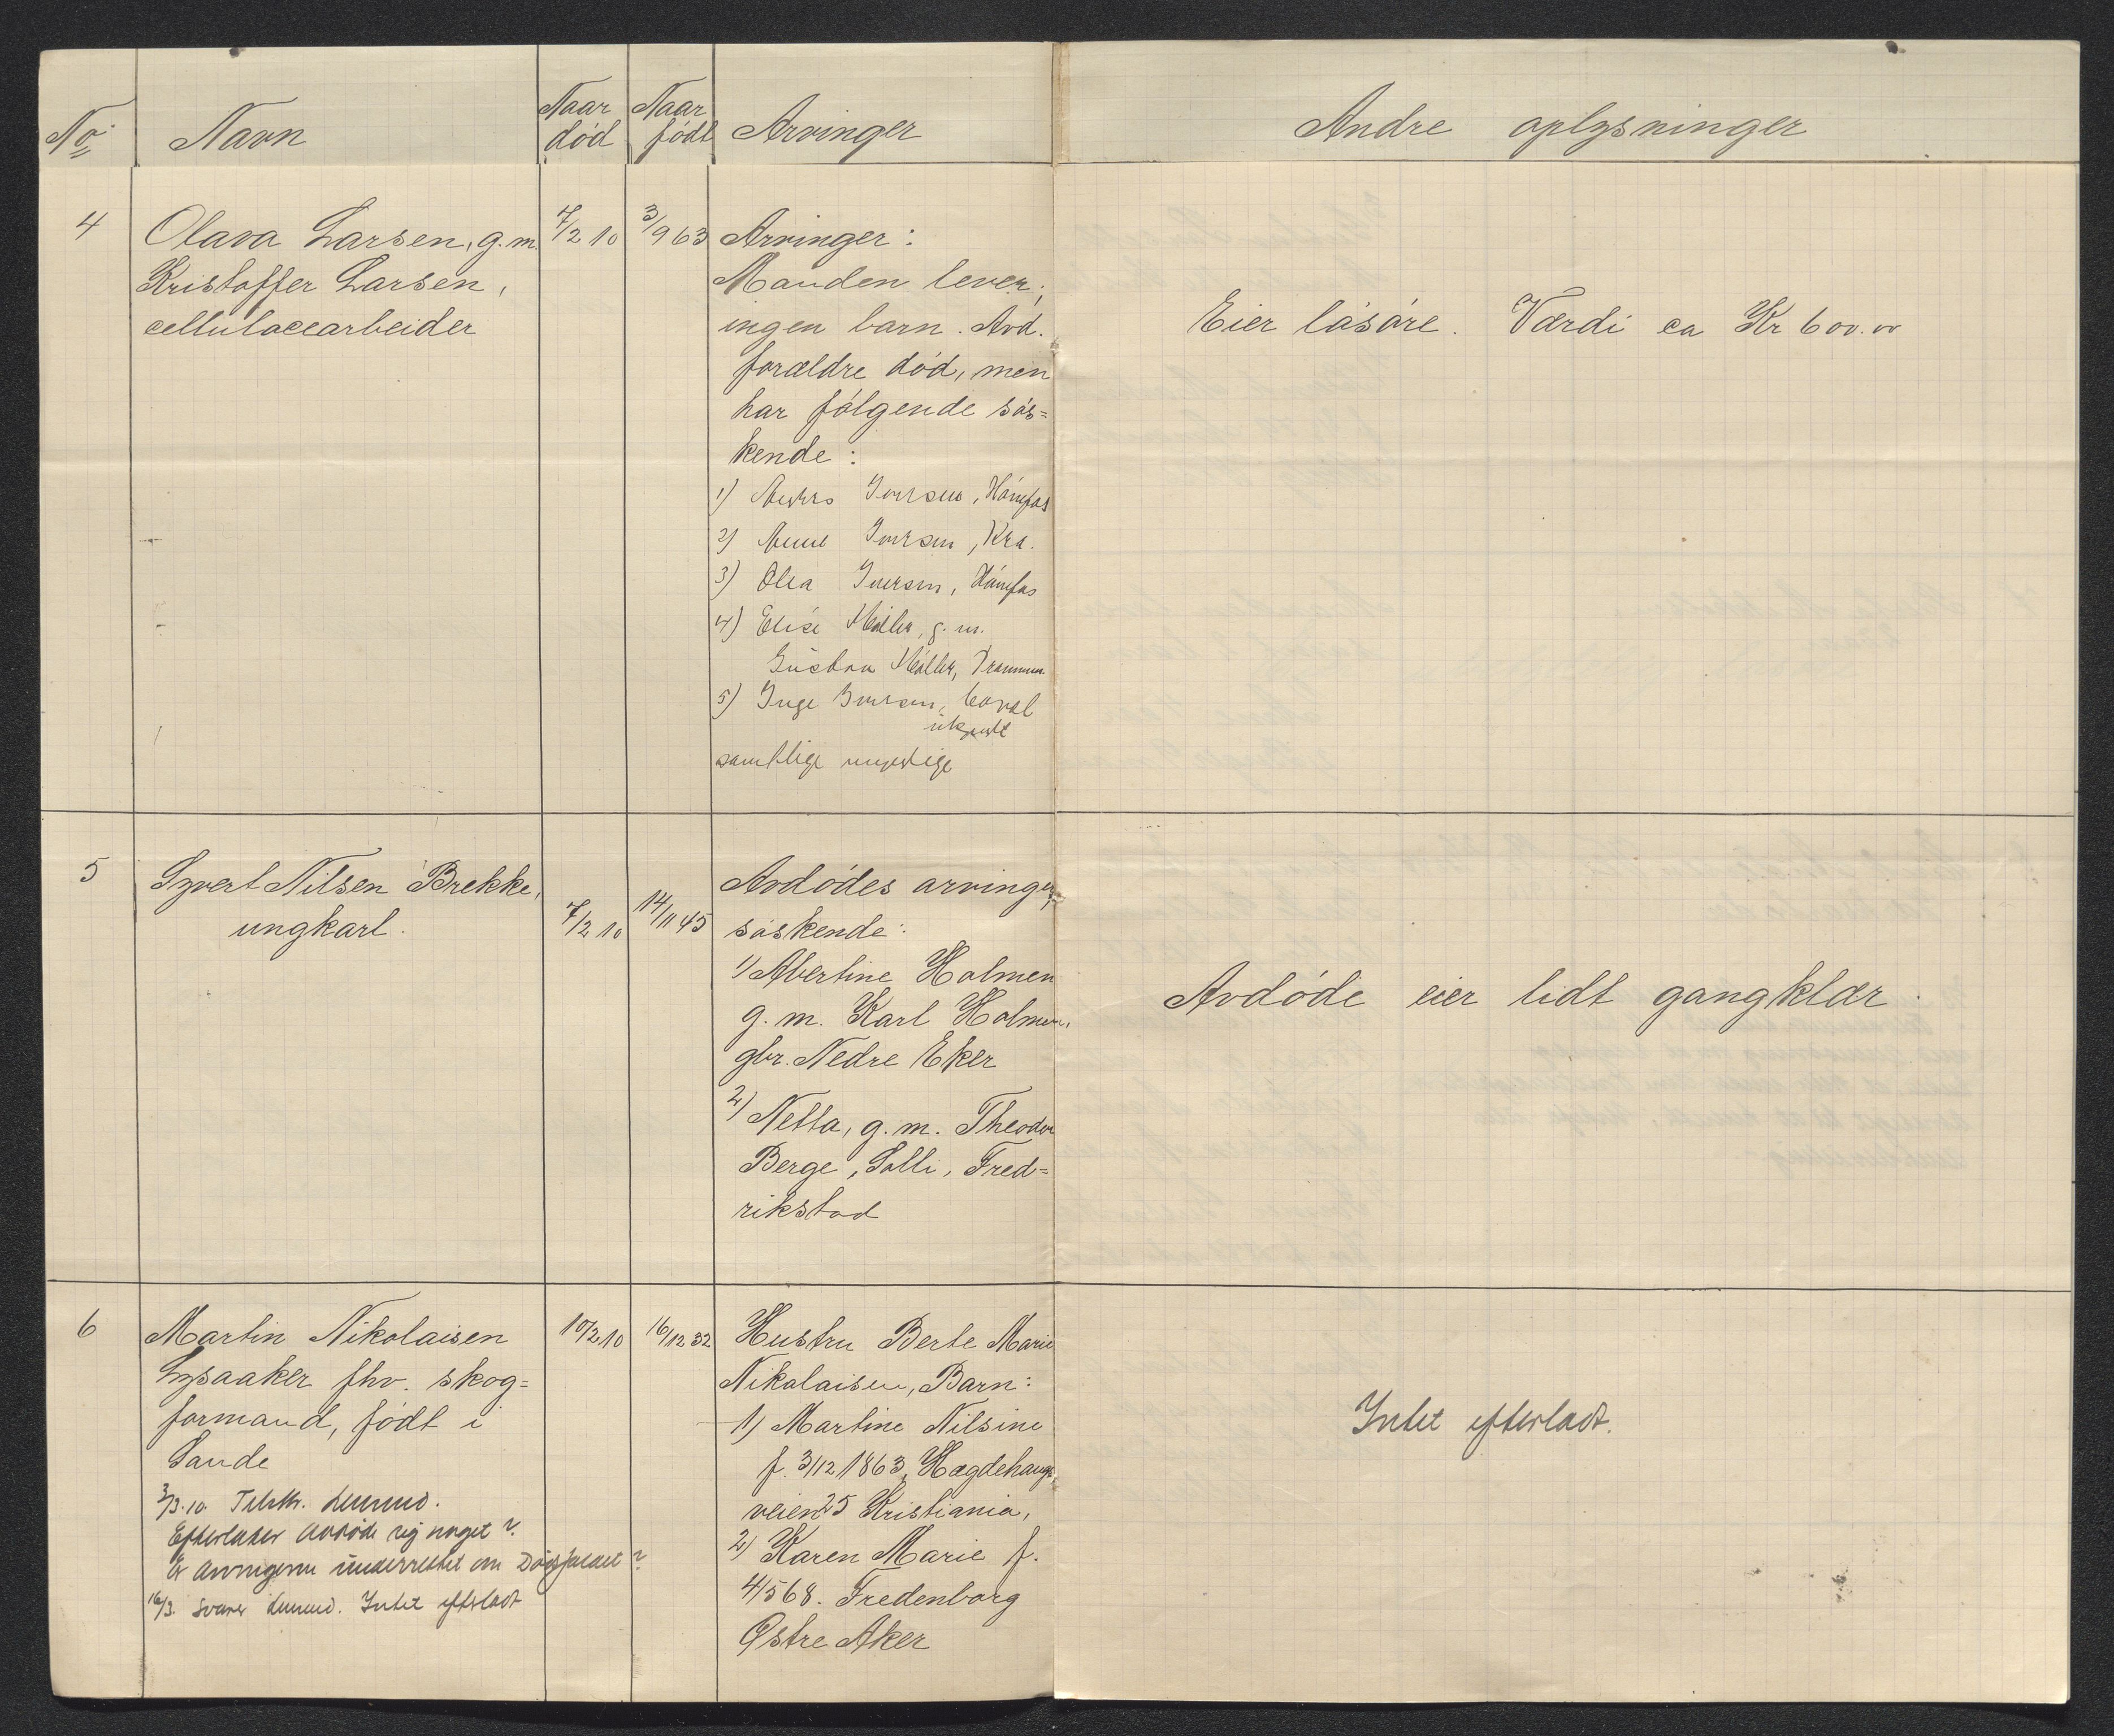 No. Navn Naar død Naar født Arvinger Andre oplysninger
4 Olava Larsen, g.m. 7/2 10 3/9 63 Arvinger:
Kristoffer Larsen,
cellulocearbeider
Manden lever,
ingen barn. Avd.
forældre död, men
har fölgende sös=
kende:
1) Iversen, Hönefos
2) Iversen, Kra.
3) Olea Iversen, Hönefos
4) Elise Möller, g. m.
Gustav Möller, Drammen
5) Inge Iversen,
ukjendt
samtlige myndige
Eier lösöre. Værdi ca Kr 600.00
5 Syvert Nilsen Brekke, 7/2 10 14/11 45
ungkarl.
Avdödes arvinger,
söskende:
1) Abertine Holmen
g. m. Karl Holmen,
gbr. Nedre Eker
2) Netta, g. m. Theodor
Berge, Solli, Fred=
rikstad
Avdöde eier lidt gangklær.
6 Martin Nikolaisen 10/2 10 16/12 32
Lysaaker fhv. skog=
formand, födt i
Sande
3/3.10. Telefr. Lensmd.
Efterlater avdöde sig noget?
Er arvingerne underrettet om Dödsfaldet?
16/3. svarer Lensmd. Intet efterladt
Hustru Berte Marie
Nikolaisen, Barn:
1) Martine Nilsine
f. 3/12 1863, Hægdehaugs
veien 25 Kristiania,
2) Karen Marie f.
4/5 68. Fredenborg
Østre Aker
Intet efterladt.